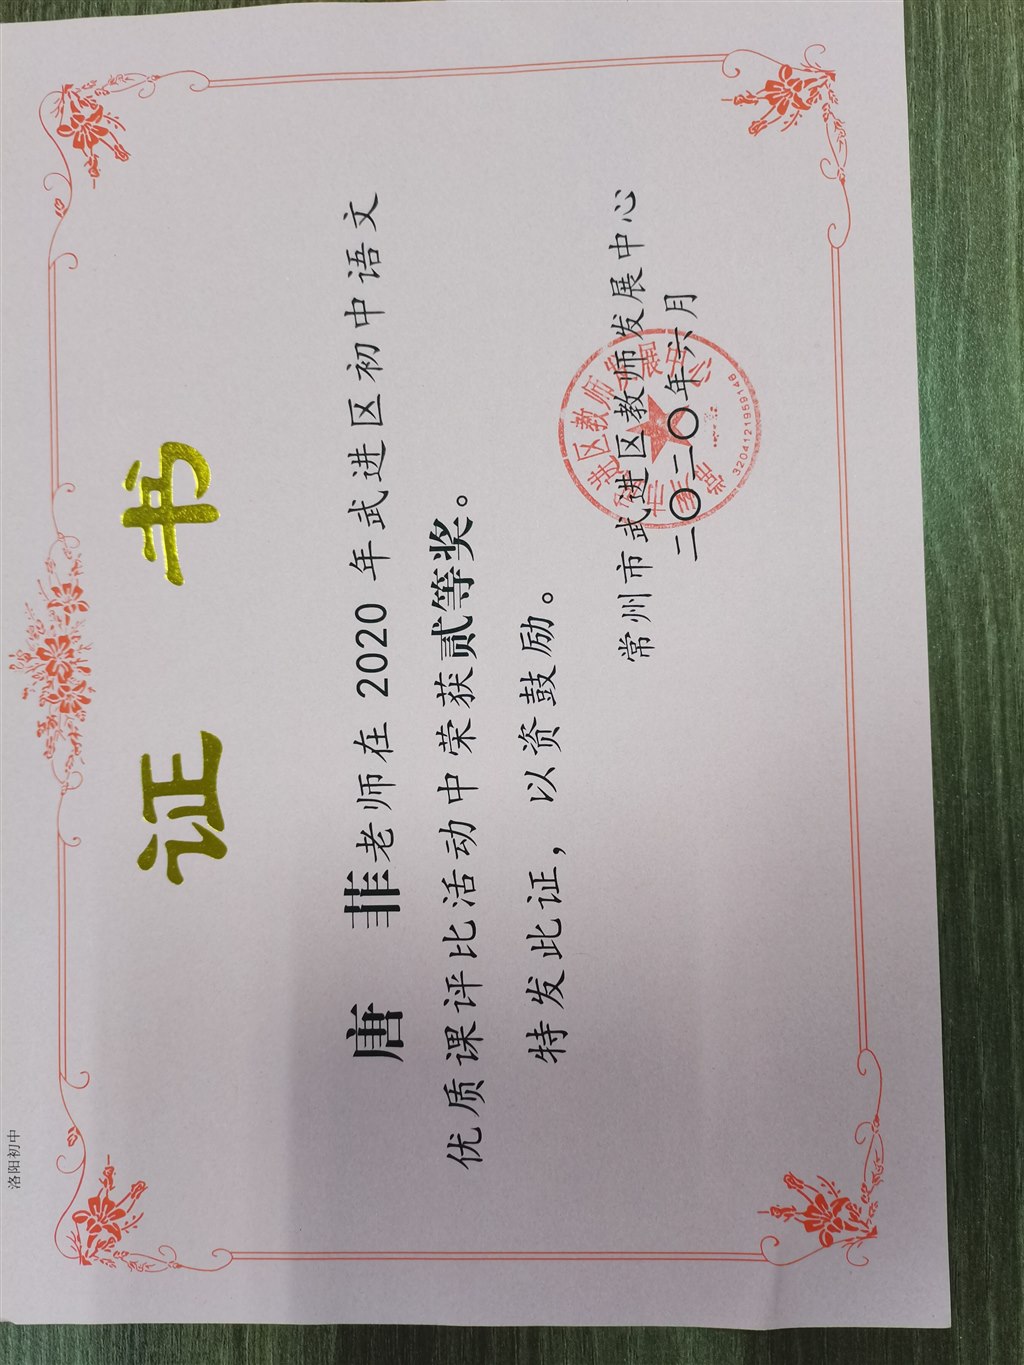 洛阳初中
证 书
唐 菲老师在 2020 年武进区初中语文
优质课评比活动中荣获贰等奖。
特发此证，以资鼓励。
常州市武进区教师发展中心
二〇二〇年六月
3204121959148